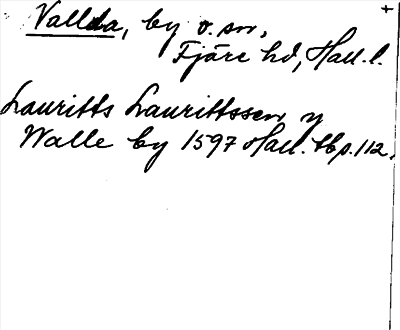 Vallda, by o. sn,
Fjäre hd, Hall. l.
Lauritts Laurittssen y
Walle by 1597 Hall. tbp. 112.